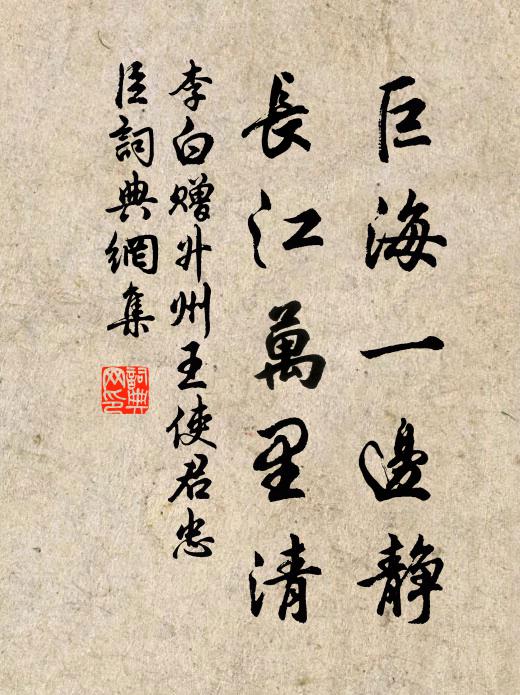 巨海一邊靜
長江萬里清
李白贈升州王使君忠
臣詞典網集
詞典
网印